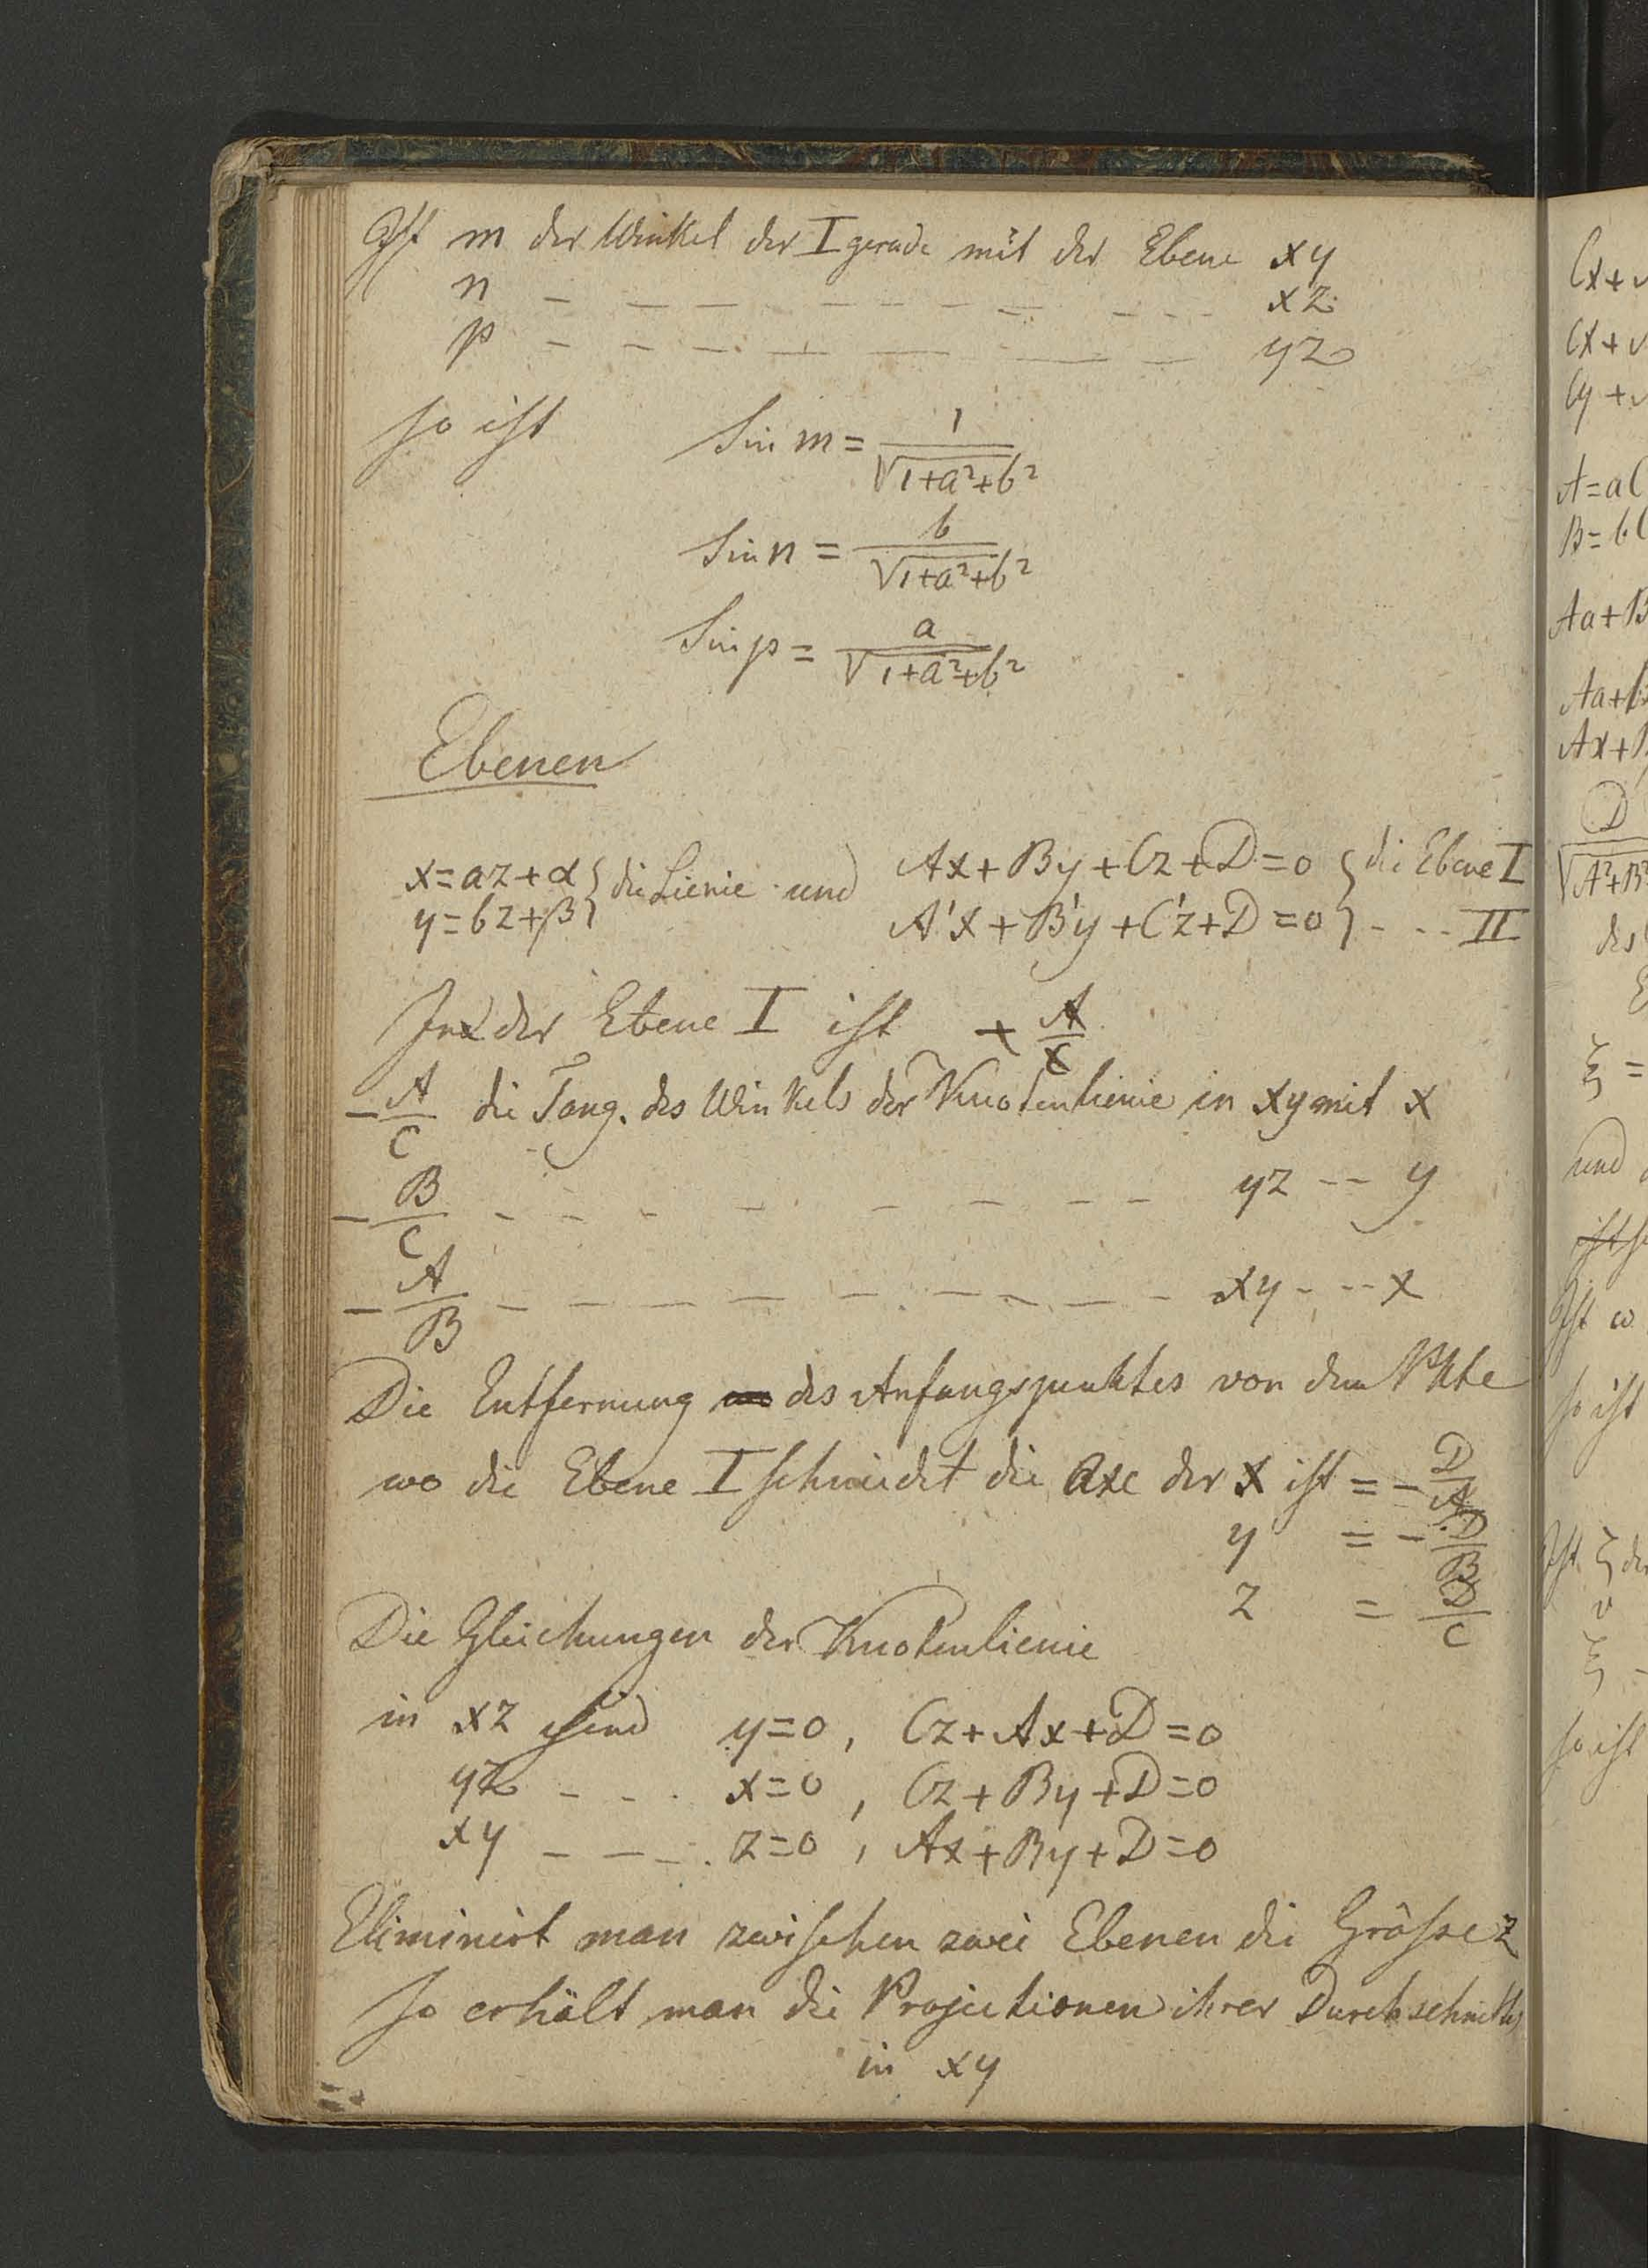 Ist m der Winkel der I gerade mit der Ebene xy
n – – – – – – – – – – – xz
p – – – – – – – – yz
so ist Sin m = 1/√(1+a²+b²)
Sin n = b/√(1+a²+b²)
Sin p = a/√(1+a²+b²)
Ebenen
x=az+α } die Linie und Ax+By+Cz+D=0 } die Ebene I
y=bz+β } A'x+B'y+C'z+D=0 } - - - II
In der Ebene I ist + A/C
-A/C die Tang. des Winkels der Knotenlienie in xy mit x
-B/C – – – – – – – – yz -- y
-A/B – – – – – – – – – xy - -- x
Die Entfernung des Anfangspunktes von dem Pkte
wo die Ebene I schneidet die Axe der x ist = -D/A
y = -D/B
z = D/C
Die Gleichungen der Knotenlienie
in xz sind y=0, Cz+Ax+D=0
yz - - - x=0, Cz+By+D=0
xy - - - z=0, Ax+By+D=0
Eliminirt man zwischen zwei Ebenen die Größe z
so erhält man die Projectionen ihrer
in xy
Cx+
Cx+
Cy+
A=aC
B=bC
Aa+B
Aa+
Ax+
D
√A²+B²
des
ξ =
und
Ist ω
so ist
Ist ξ
υ
ξ
so ist